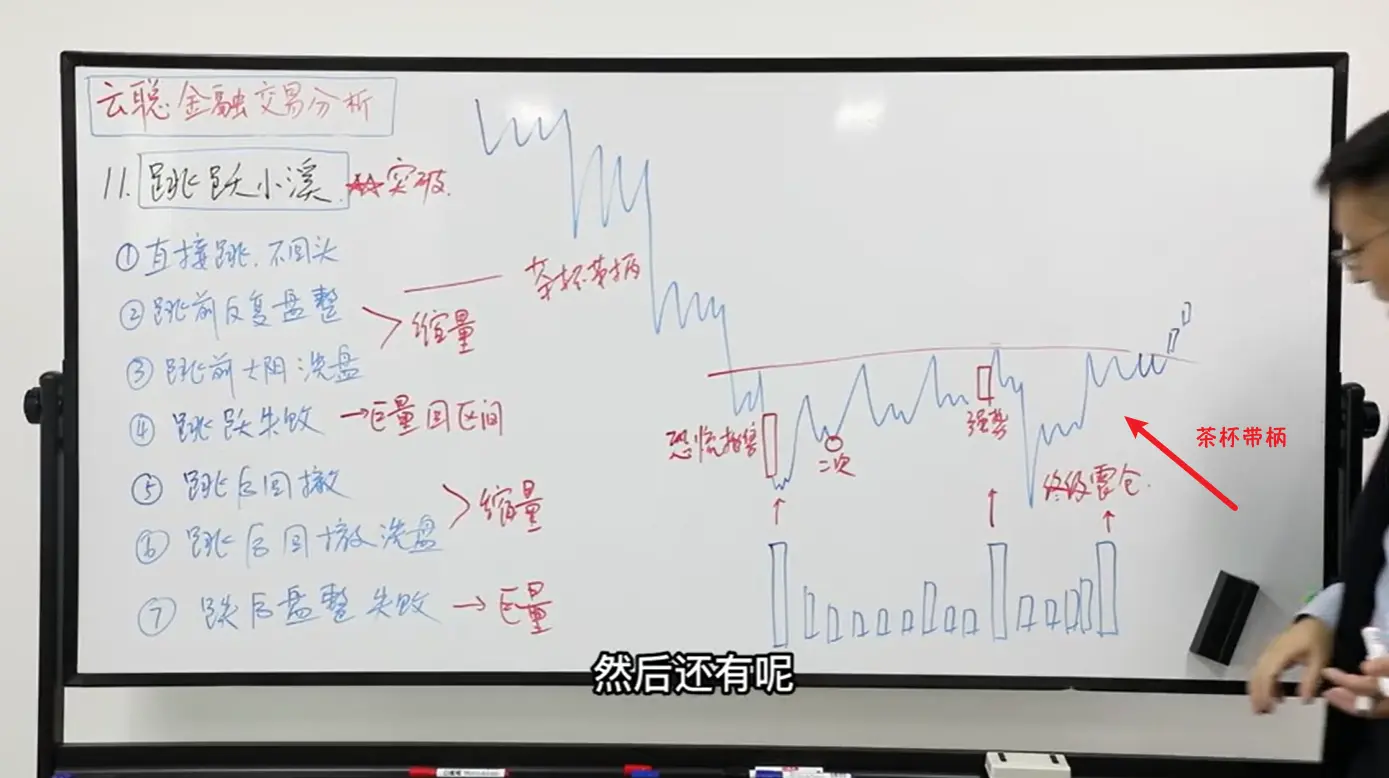 云聪·金融交易分析
11. 跳跃小溪. 突破.
① 直接跳. 不回头
② 跳前反复盘整
③ 跳前大阴洗盘
缩量
茶杯带柄
④ 跳跃失败 → 巨量回区间
⑤ 跳后回撤
⑥ 跳后回撤洗盘
缩量
⑦ 跌后盘整失败 → 巨量
恐慌抛售
二次
强势
终级震仓.
茶杯带柄
然后还有呢